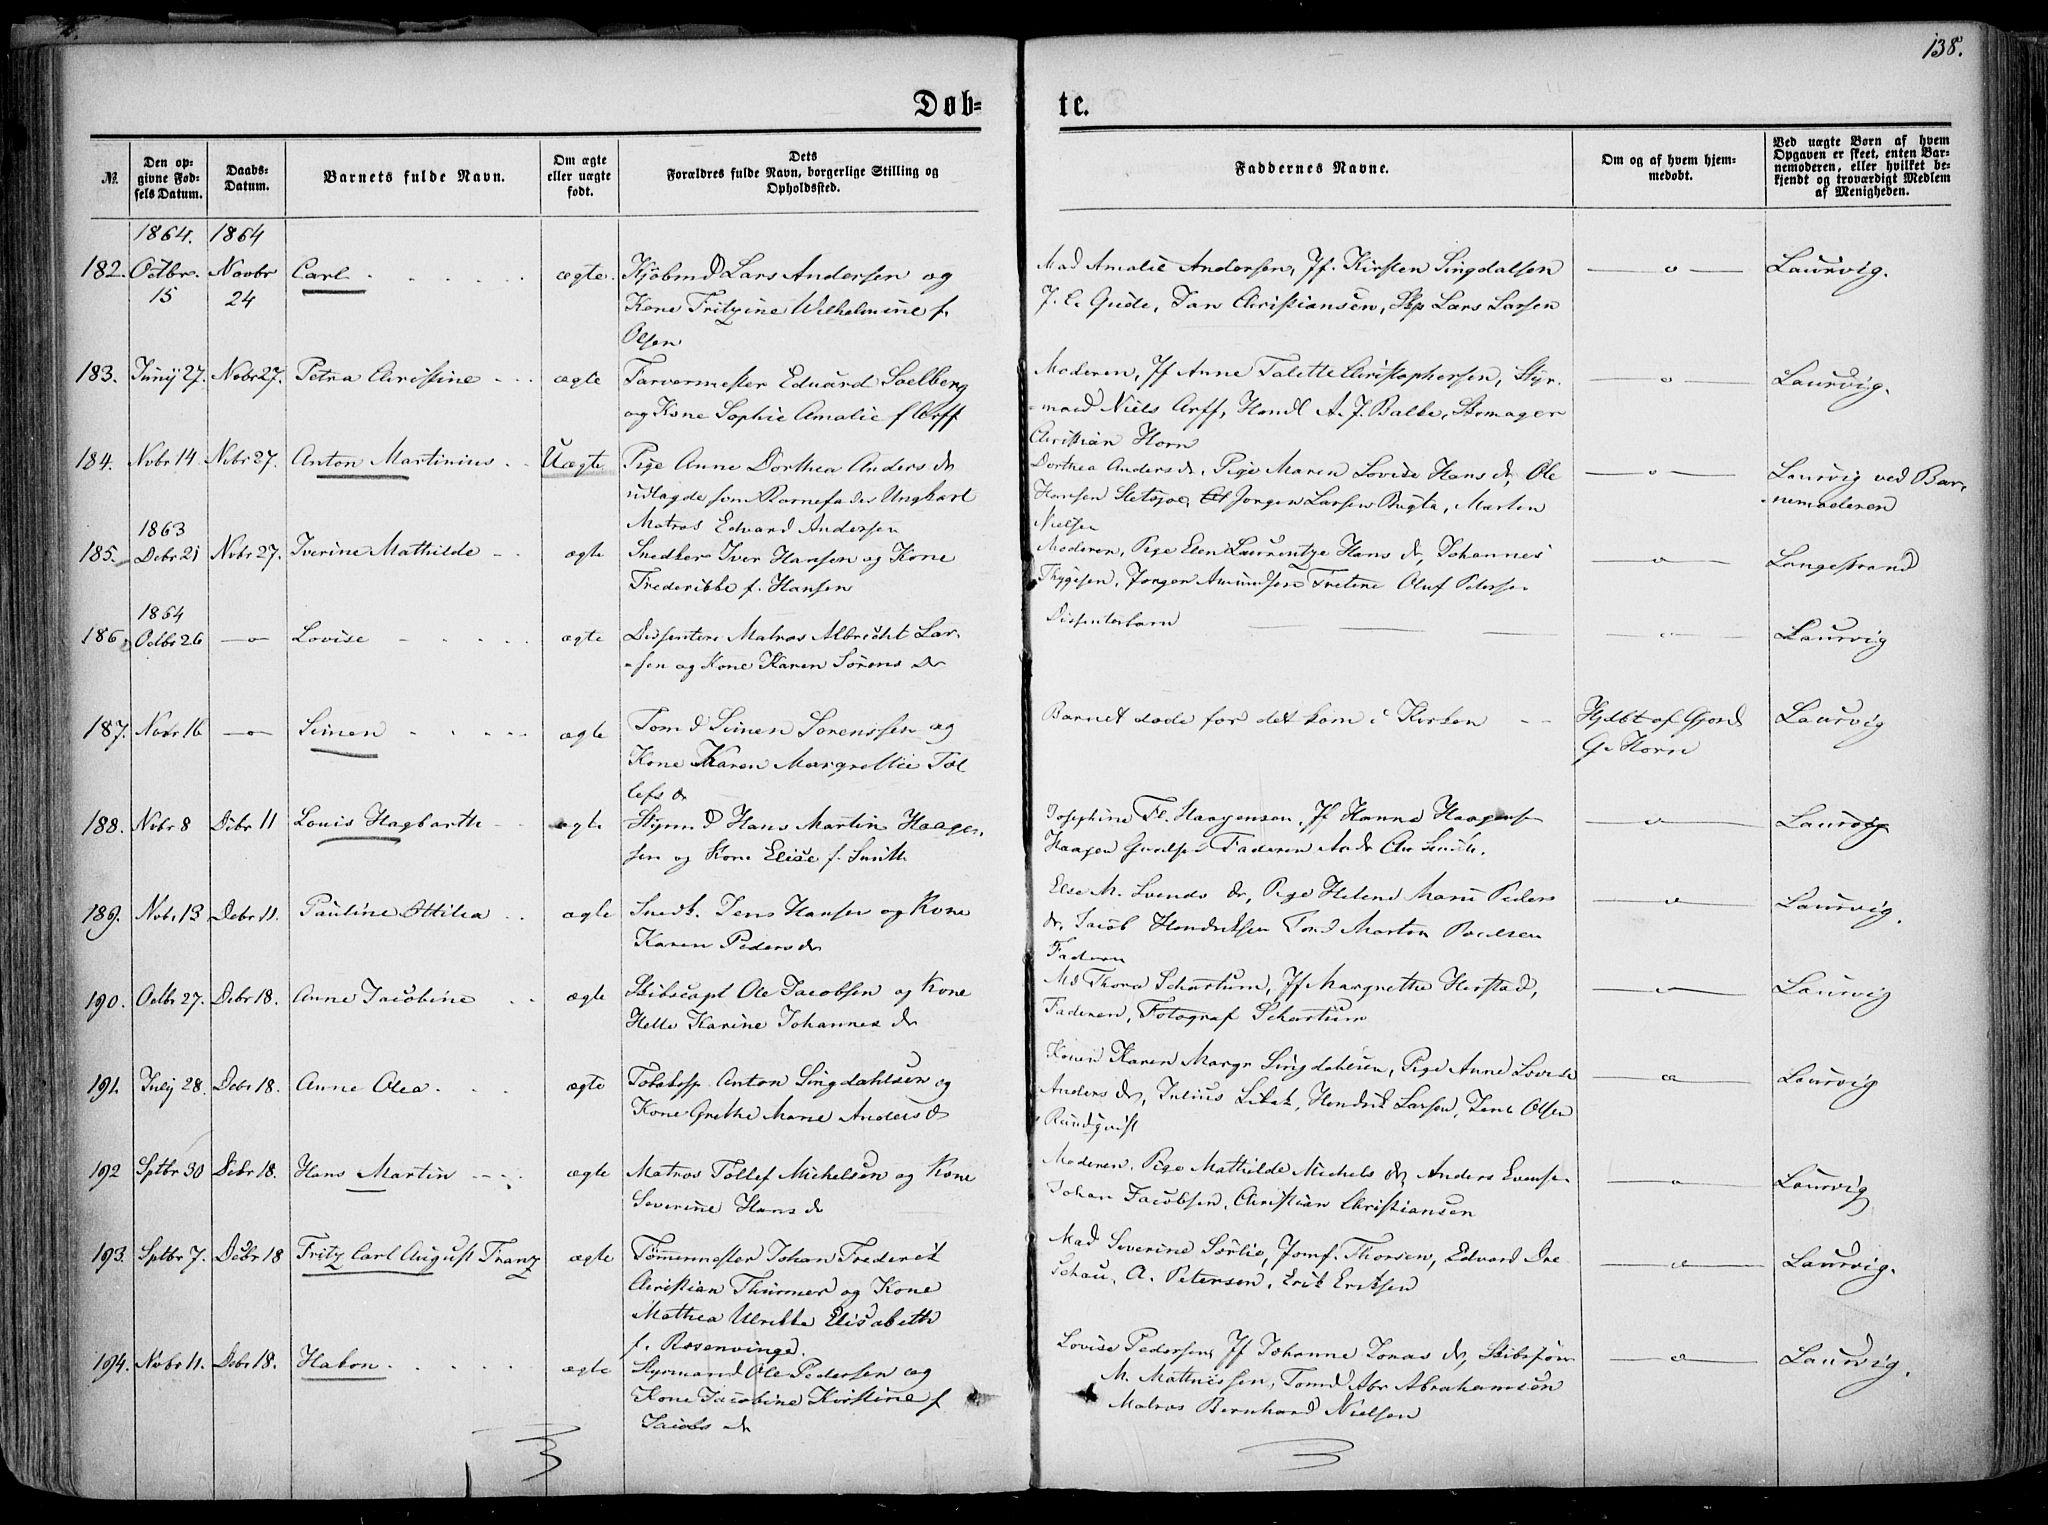 138.
Døb= te.
№.
Den op=
givne Fød=
sels Datum.
Daabs=
Datum.
Barnets fulde Navn.
Om ægte
eller uægte
født.
Dets
Forældres fulde Navn, borgerlige Stilling og
Opholdssted.
Faddernes Navne.
Om og af hvem hjem=
medøbt.
Ved uægte Børn af hvem
Opgaven er skeet, enten Bar=
nemoderen, eller hvilket be=
kjendt og troværdigt Medlem
af Menigheden.
1864. 1864
182. Octbr. Novbr Carl ægte. Kjøbmd Lars Andersen og Mad Amalie Andersen, Jf. Kirsten Singdalsen — o — Laurvig.
15 24 Kone Fritzine Wilhelmine f. J. C. Gude, Jan Christiansen, Skp Lars Larsen
Olsen
183. Junij 27. Nobr 27. Petra Christine ægte Farvermester Eduard Soelberg Moderen, Jf Anne Talette Christophersen, Styr- — o — Laurvig.
og Kone Sophie Amalie f Arff -mand Niels Arff, Handl A. J. Balke, Skomager
Christian Horn
184. Nvbr 14 Nvbr 27. Anton Martinius Uægte Pige Anne Dorthea Anders dr Dorthea Anders dr, Pige Maren Lovise Hans dr, Ole — o — Laurvig ved Bar-
udlagde som Barnefader Ungkarl Hansen Jorgen Larsen Bugta, Marten nemoderen
Matros Edvard Andersen Nielsen
1863
185. Debr 21 Nvbr 27. Iverine Mathilde ægte Snedker Iver Hansen og Kone Moderen, Pige Elen Laurentze Hans dr, Johannes — o — Langestrand
Frederikke f. Hansen Thygesen, Jorgen Amundsen Oluf Petersen
1864
186. Octbr 26 — o — Lovise ægte Dissenter Matros Albrecht Lar- Dissenterbarn — — Laurvig
-sen og Kone Karen Sørens dr
187. Novbr 16 — o — Simen ægte Tom d Simen Sorenssen og Barnet døde før det kom i Kirken Hjdbt af Gjord Laurvig
Kone Karen Margrethe Tol G. Horn
lefs dr
188. Nvbr 8 Debr 11 Louis Hagbarth ægte Styrmd Hans Martin Haagen- Josephine Fr. Haagensen, Jf Hanna Haagens — o — Laurvig
sen og Kone Elise f. Smith Haagen Faderen And Chr Smith.
189. Nvbr 13 Debr 11. Pauline Ottilia ægte Snedk. Jens Hansen og Kone Else M. Svends dr, Pige Helene Marie Peders — o — Laurvig.
Karen Peders dr dr, Jacob Hendriksen Tomd Morten Poulsen
Faderen
190. Octbr 27. Debr 18. Anne Jacobine ægte Skibscapt Ole Jacobsen og Kone Md Thora Schartum, Jf Margrethe Herstad, — o — Laurvig
Helle Karine Johannes dr Faderen, Fotograf Schartum
191. Julij 28. Debr 18. Anne Olea ægte Tobaksp. Anton Singdahlsen og Konen Karen Margr Singdahlsen, Pige Anne Lovise — o — Laurvig
Kone Grethe Marie Anders d Anders dr, Julius Hendrik Larsen, Jens Olsen
Rundqvist
192 Sptbr 30 Debr 18. Hans Martin ægte Matros Tollef Michelsen og Kone Moderen, Pige Mathilde Michels dr, Anders Evensen — o — Laurvig
Severine Hans dr Johan Jacobsen, Christian Christiansen
193. Sptbr 7. Debr 18 Fritz Carl August Franz ægte Tømmermester Johan Frederik Mad Severine Sørlie, Jomf. Thorsen, Edvard Dre — o — Laurvig.
Christian Thurmer og Kone Schau, A. Petersen, Erik Eriksen
Mathea Ulrikke Elisabeth
f. Rosenvinge.
194. Nvbr 11. Debr 18. Hakon ægte Styrmand Ole Pedersen og Lovise Pedersen, Jf Johanne Jonas dr, Skibstøm — o — Laurvig.
Kone Jacobine Kirstine f M. Mathiessen, Tomd Abr Abrahamsen
Jacobs dr Matros Bernhard Nielsen